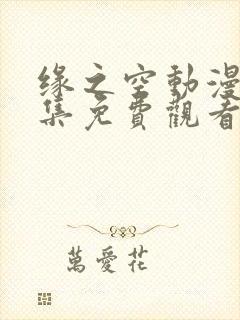 緣之空動漫
集免費觀看
萬愛花